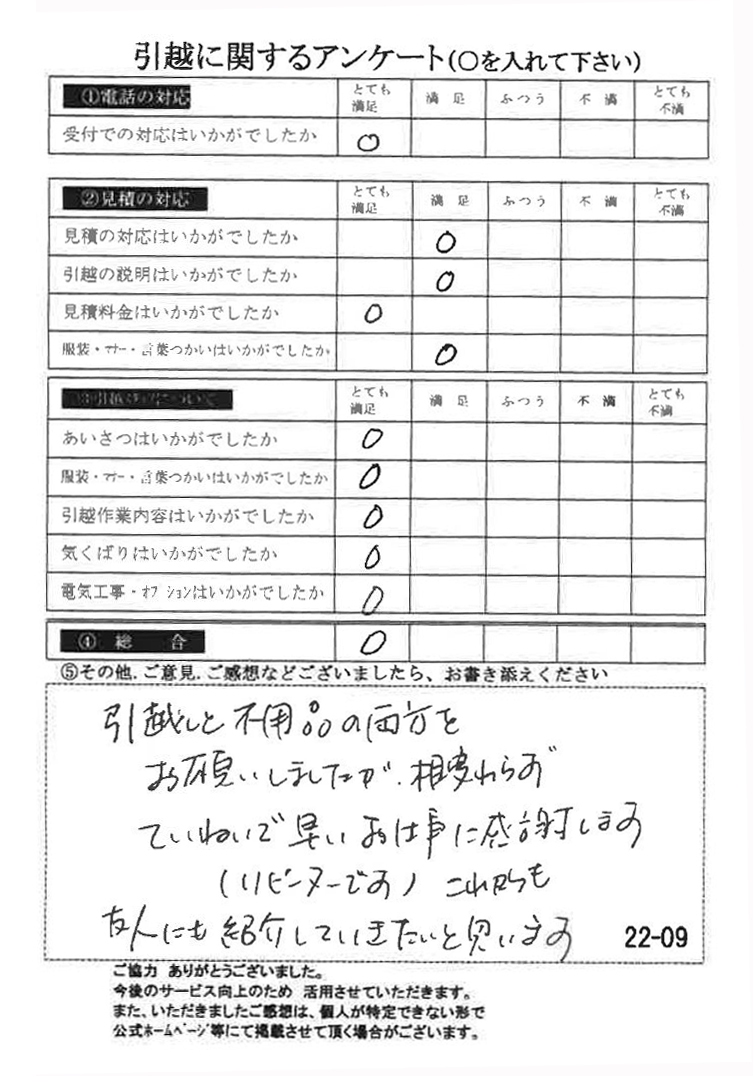 引越に関するアンケート(○を入れて下さい)
①電話の対応 とても満足 満足 ふつう 不満 とても不満
受付での対応はいかがでしたか ○
②見積の対応 とても満足 満足 ふつう 不満 とても不満
見積の対応はいかがでしたか ○
引越の説明はいかがでしたか ○
見積料金はいかがでしたか ○
服装・マナー・言葉つかいはいかがでしたか ○
③引越 について とても満足 満足 ふつう 不満 とても不満
あいさつはいかがでしたか ○
服装・マナー・言葉つかいはいかがでしたか ○
引越作業内容はいかがでしたか ○
気くばりはいかがでしたか ○
電気工事・オプションはいかがでしたか ○
④ 総 合 ○
⑤その他.ご意見.ご感想などございましたら、お書き添えください
引越しと不用品の両方を
お願いしましたが、相変わらず
ていねいで早いお仕事に感謝します
(リピーターです) これからも
友人にも紹介していきたいと思います
22-09
ご協力 ありがとうございました。
今後のサービス向上のため 活用させていただきます。
また、いただきましたご感想は、個人が特定できない形で
公式ホームページ等にて掲載させて頂く場合がございます。